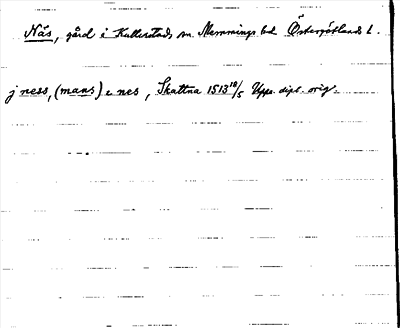 Näs, gård i Kullerstads sn. Memmings hd Östergötlands l.
j ness, (mans) e nes, Skattna 1513 18/5 Upps. dipl. orig.